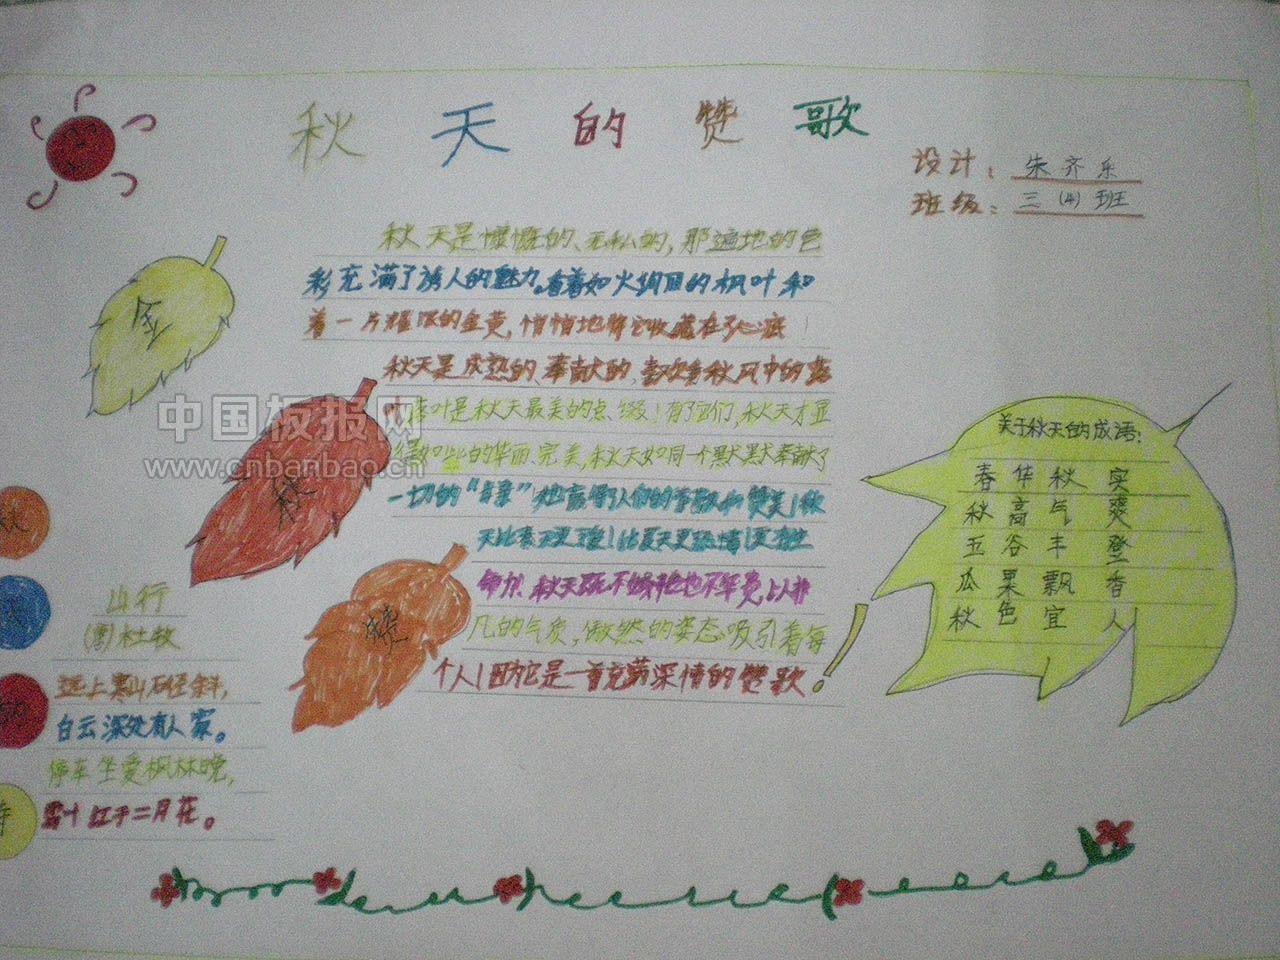 秋天的赞歌
设计：朱齐乐
班级：三（4）班
秋天是慷慨的、无私的，那遍地的色
彩充满了诱人的魅力。看着如火绸般的枫叶和
着一片耀眼的金黄，悄悄地将它收藏在了心底！
秋天是成熟的、奉献的，喜欢看秋风中的落
叶，落叶是秋天最美的点缀！有了它们，秋天才显
得如此的华丽、完美，秋天如同一个默默奉献了
一切的“母亲”她赢得了人们的尊敬和赞美！秋
天比春天更 ！比夏天更热情！更有生
命力！秋天既不娇艳也不华贵，
凡的气质，傲然的姿态吸引着每
个人！因为它是一首充满深情的赞歌！
金
秋
中国板报网
www.cnbanbao.cn
秋
天
的
诗
山行
(唐)杜牧
远上寒山石径斜，
白云深处有人家。
停车坐爱枫林晚，
霜叶红于二月花。
关于秋天的成语：
春华秋实
秋高气爽
五谷丰登
瓜果飘香
秋色宜人